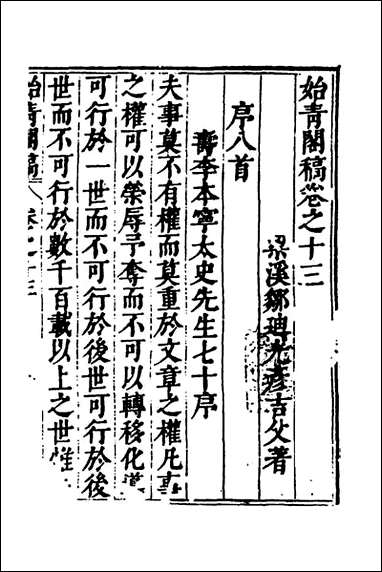 始青閣稿卷之十三
梁溪鄒迪光彥吉父著
序八首
壽李本寧太史先生七十序
夫事莫不有權而莫重於文章之權凡事
之權可以榮辱予奪而不可以轉移化
可行於一世而不可行於後世可行於後
世而不可行於數千百載以上之世惟
始青閣稿 卷之十三